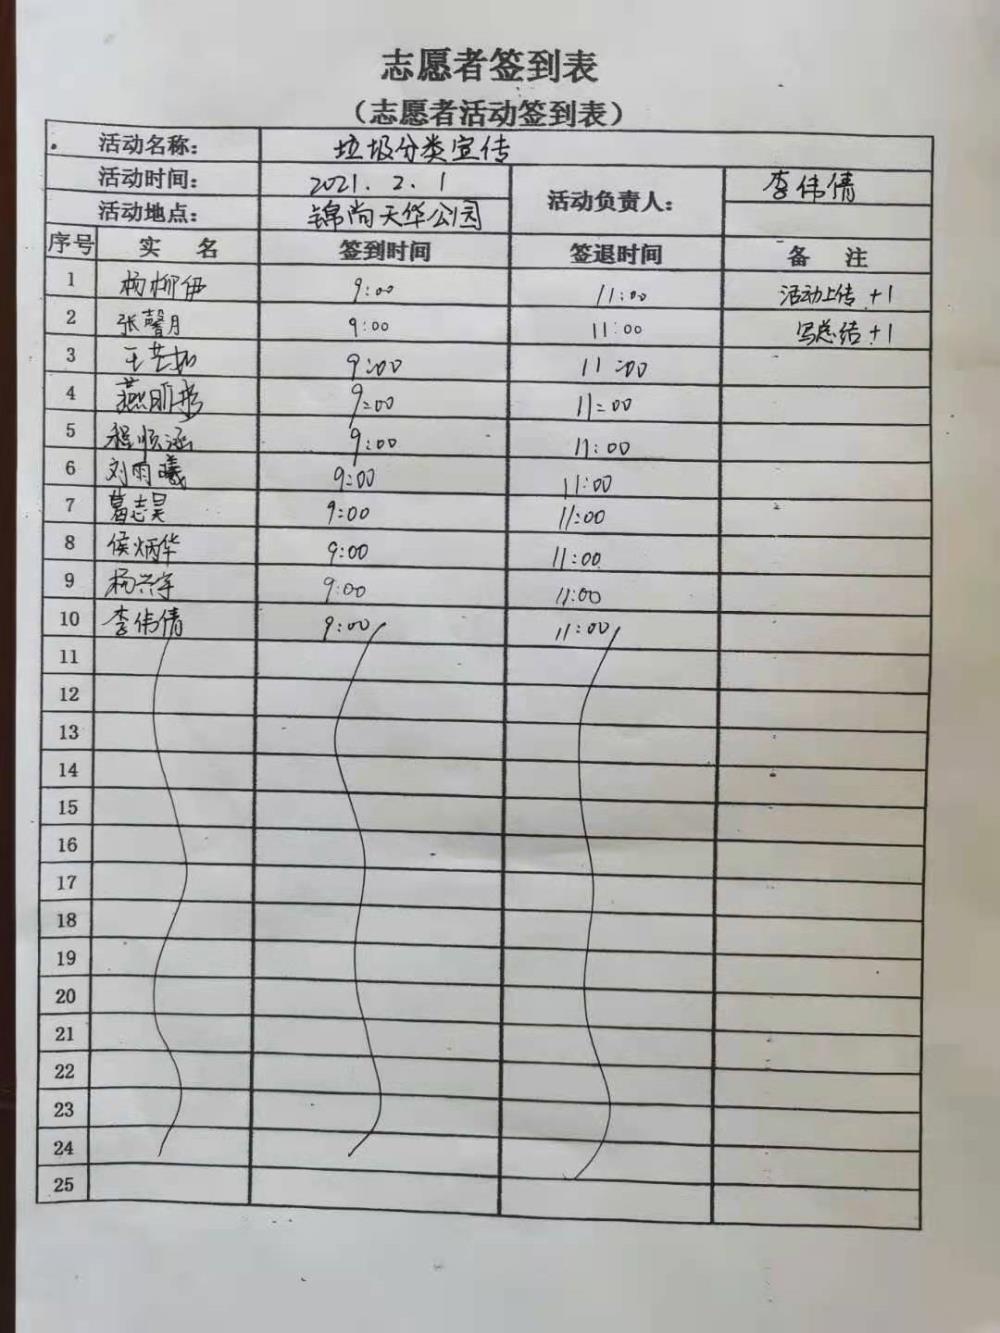 志愿者签到表
（志愿者活动签到表）
活动名称： 垃圾分类宣传
活动时间： 2021.2.1 活动负责人： 李伟倩
活动地点： 锦尚天华公园
序号 实 名 签到时间 签退时间 备 注
1 杨柳伊 9:00 11:00 活动上传 +1
2 张馨月 9:00 11:00 写总结 +1
3 王芸 9:00 11:00
4 燕 9:00 11:00
5 程顺涵 9:00 11:00
6 刘雨曦 9:00 11:00
7 葛志昊 9:00 11:00
8 侯炳华 9:00 11:00
9 杨兴宇 9:00 11:00
10 李伟倩 9:00 11:00
11
12
13
14
15
16
17
18
19
20
21
22
23
24
25